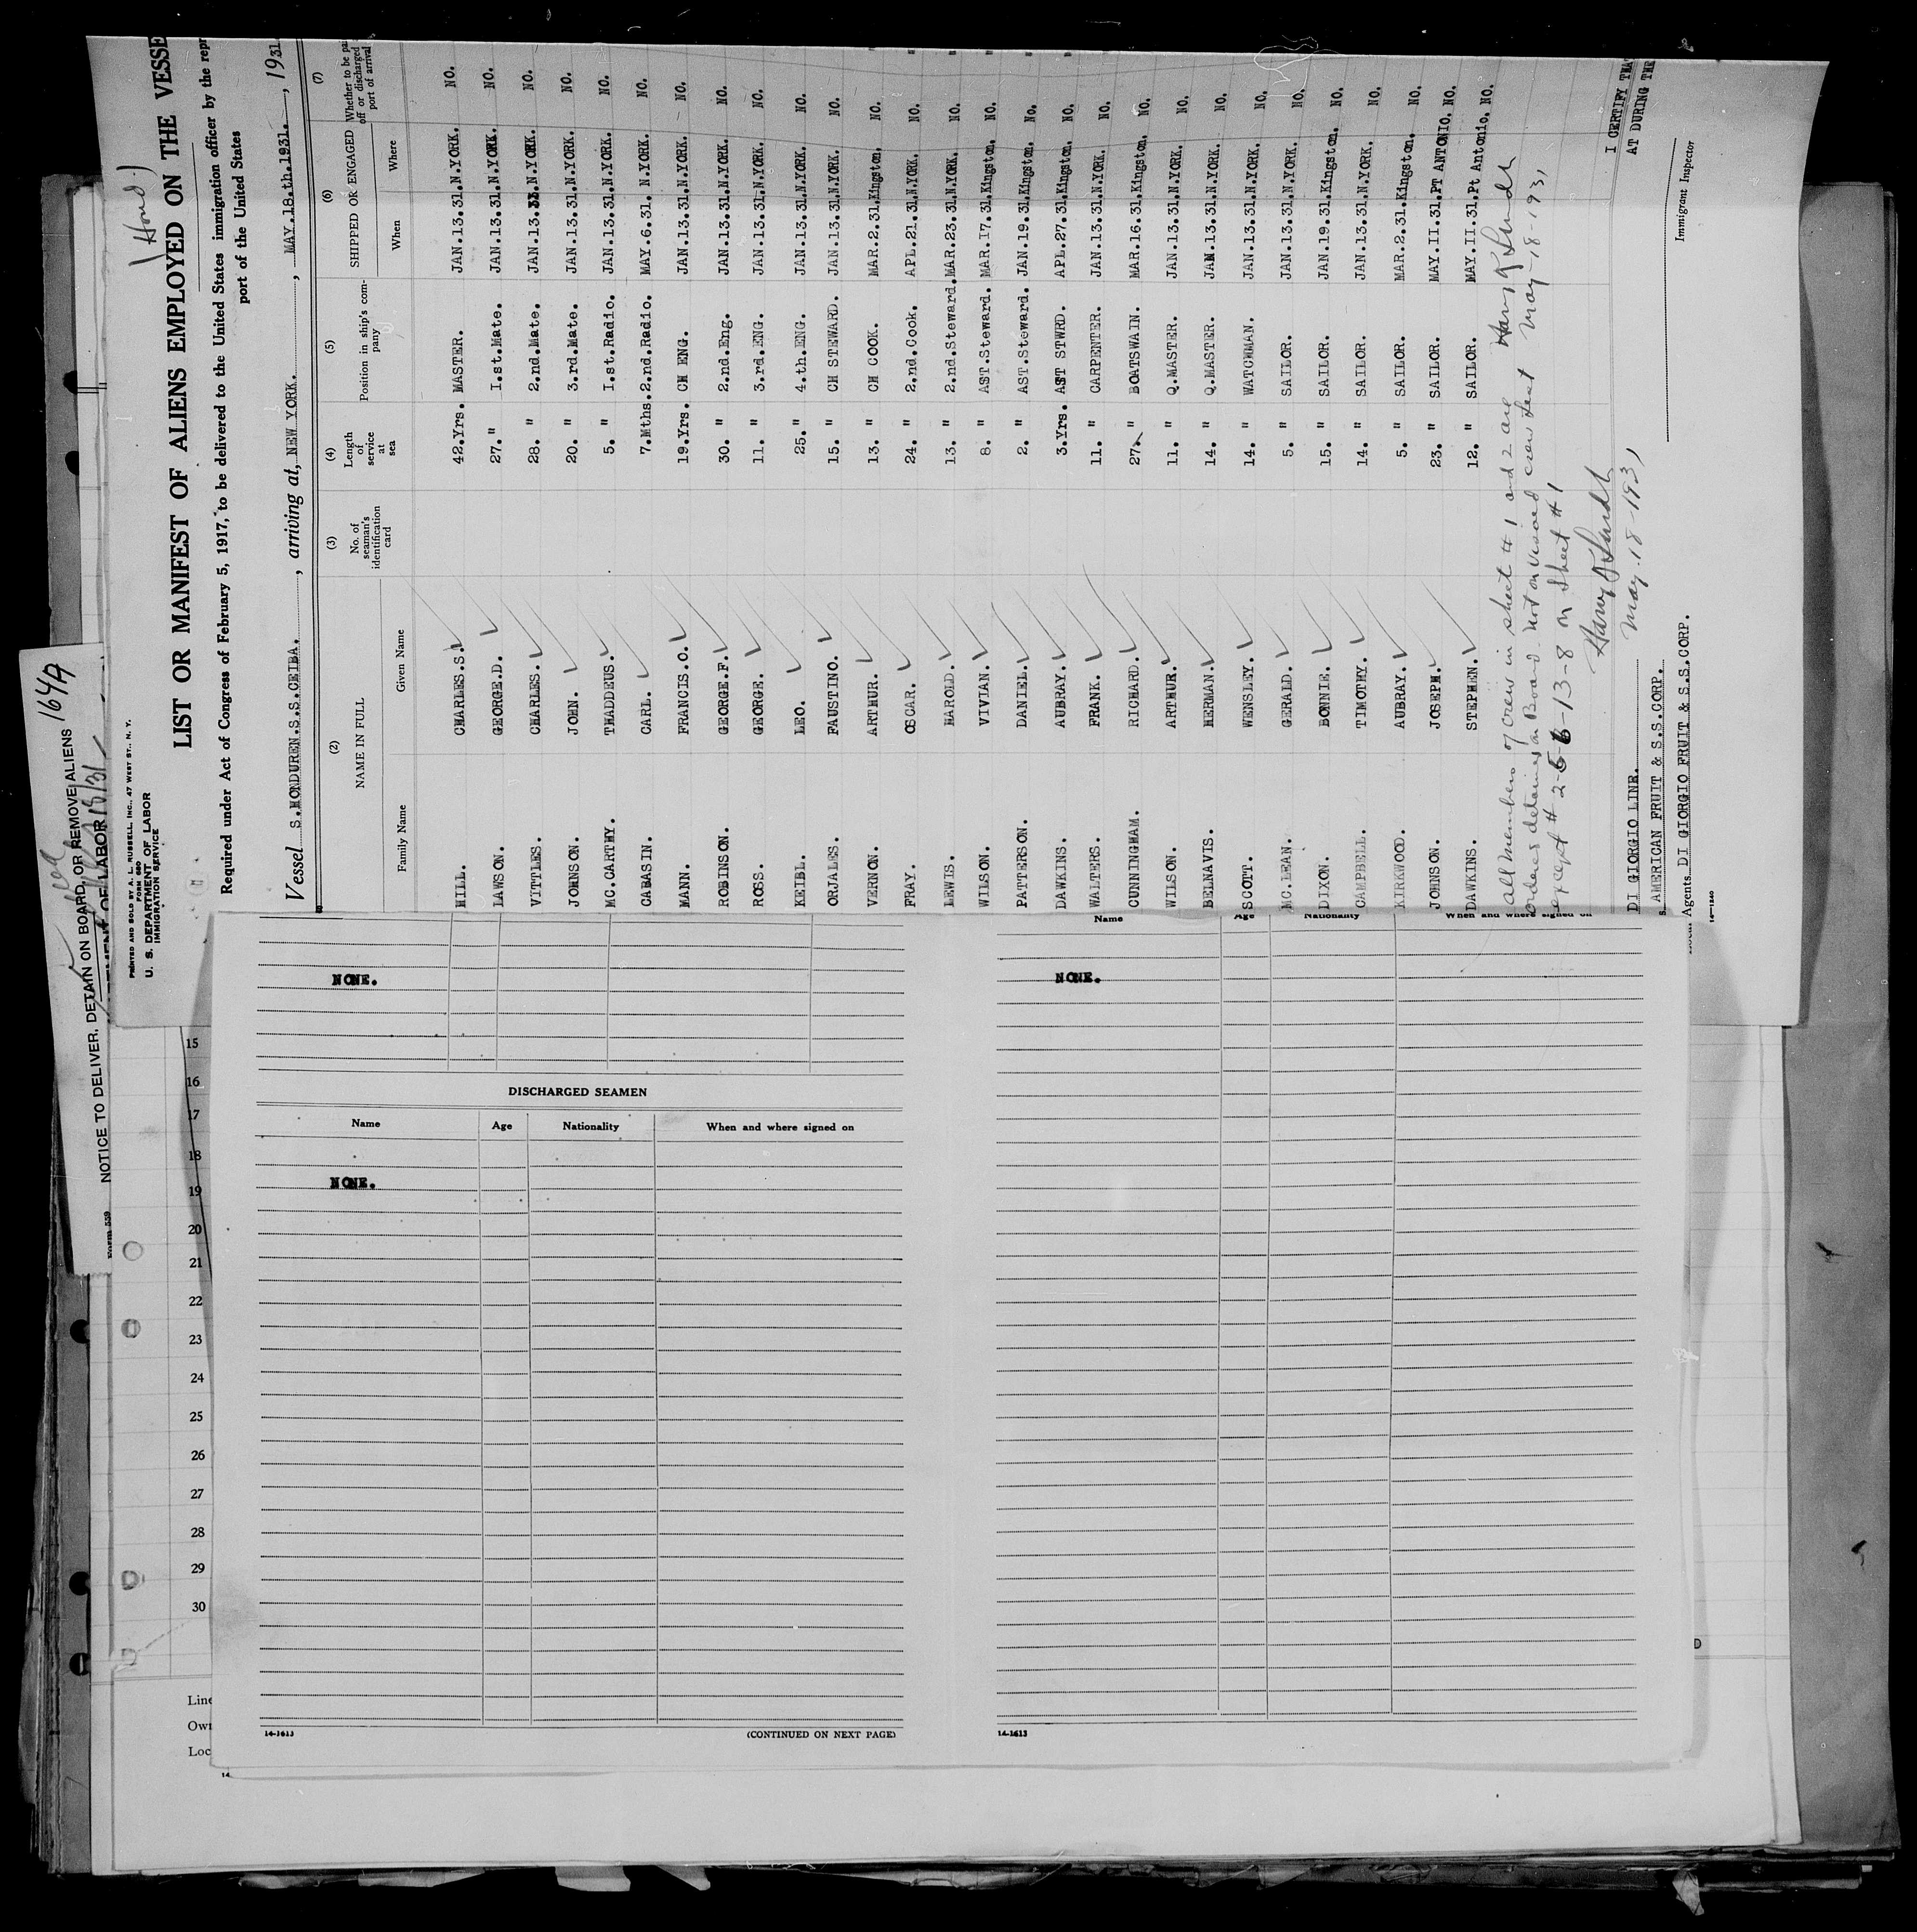 164A
NOTICE TO DELIVER, DETAIN ON BOARD, OR REMOVE ALIENS
Form 559
PRINTED AND SOLD BY A. L. RUSSELL, INC., 47 WEST ST., N. Y.
FORM 680
U. S. DEPARTMENT OF LABOR
IMMIGRATION SERVICE
(Hond.)
LIST OR MANIFEST OF ALIENS EMPLOYED ON THE VESSE
Required under Act of Congress of February 5, 1917, to be delivered to the United States immigration officer by the repr
port of the United States
Vessel S.HONDUREN.S.S.CEIBA. , arriving at, NEW YORK. , MAY.18.th.1931. , 1931
(2) (3) (4) (5) (6) (7)
NAME IN FULL No. of seaman's identification card Length of service at sea Position in ship's company SHIPPED OR ENGAGED Whether to be pai off or discharged port of arrival
Family Name Given Name When Where
HILL. CHARLES.S. 42.Yrs. MASTER. JAN.13.31. N.YORK. NO.
LAWSON. GEORGE.D. 27. " I.st.Mate. JAN.13.31. N.YORK. NO.
VITTLES. CHARLES. 28. " 2.nd.Mate. JAN.13.31. N.YORK. NO.
JOHNSON. JOHN. 20. " 3.rd.Mate. JAN.13.31. N.YORK. NO.
MC.CARTHY. THADDEUS. 5. " I.st.Radio. JAN.13.31. N.YORK. NO.
CABASIN. CARL. 7.Mths. 2.nd.Radio. MAY.6.31. N.YORK. NO.
MANN. FRANCIS.O. 19.Yrs. CH ENG. JAN.13.31. N.YORK. NO.
ROBINSON. GEORGE.F. 30. " 2.nd.Eng. JAN.13.31. N.YORK. NO.
ROSS. GEORGE. 11. " 3.rd.ENG. JAN.13.31. N.YORK. NO.
KEIBL. LEO. 25. " 4.th.ENG. JAN.13.31. N.YORK. NO.
ORJALES. FAUSTINO. 15. " CH STEWARD. JAN.13.31. N.YORK. NO.
VERNON. ARTHUR. 13. " CH COOK. MAR.2.31. Kingston. NO.
FRAY. OSCAR. 24. " 2.nd.Cook. APL.21.31. N.YORK. NO.
LEWIS. HAROLD. 13. " 2.nd.Steward. MAR.23.31. N.YORK. NO.
WILSON. VIVIAN. 8. " AST.Steward. MAR.17.31. Kingston. NO.
PATTERSON. DANIEL. 2. " AST.Steward. JAN.19.31. Kingston. No.
DAWKINS. AUBRAY. 3.Yrs. AST STWRD. APL.27.31. Kingston. NO.
WALTERS. FRANK. 11. " CARPENTER. JAN.13.31. N.YORK. NO.
CUNNINGHAM. RICHARD. 27. " BOATSWAIN. MAR.16.31. Kingston. NO.
WILSON. ARTHUR. 11. " Q.MASTER. JAN.13.31. N.YORK. NO.
BELNAVIS. HERMAN. 14. " Q.MASTER. JAN.13.31. N.YORK. NO.
SCOTT. WENSLEY. 14. " WATCHMAN. JAN.13.31. N.YORK. NO.
MC.LEAN. GERALD. 5. " SAILOR. JAN.13.31. N.YORK. NO.
DIXON. BONNIE. 15. " SAILOR. JAN.19.31. Kingston. NO.
CAMPBELL. TIMOTHY. 14. " SAILOR. JAN.13.31. N.YORK. NO.
KIRKWOOD. AUBRAY. 5. " SAILOR. MAR.2.31. Kingston. NO.
JOHNSON. JOSEPH. 23. " SAILOR. MAY.11.31. PT ANTONIO. NO.
DAWKINS. STEPHEN. 12. " SAILOR. MAY.11.31. Pt Antonio. NO.
all members of crew in sheet #1 and 2 are
ordered detained on Board not on visaed crew list May-18-1931
except # 2-5-6-13-8 on Sheet #1
May-18-1931
I CERTIFY THA
AT DURING THE
Immigrant Inspector
DI GIORGIO LINE.
AMERICAN FRUIT & S.S.CORP.
Agents DI GIORGIO FRUIT & S.S.CORP.
14-1240
NONE.
DISCHARGED SEAMEN
Name Age Nationality When and where signed on
NONE.
14-1613 (CONTINUED ON NEXT PAGE)
Name Age Nationality When and where signed on
NONE.
14-1613
15
16
17
18
19
20
21
22
23
24
25
26
27
28
29
30
Line
Own
Loc
14